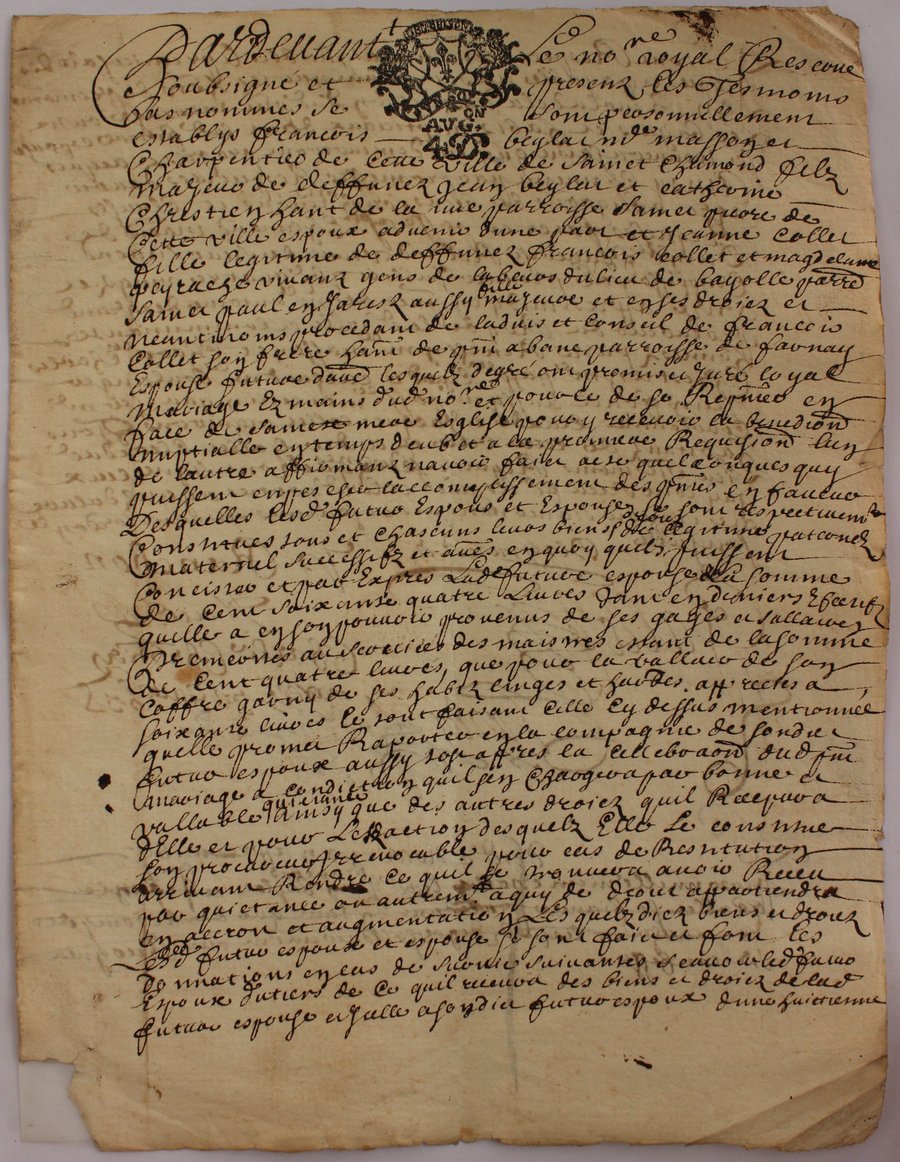 Pardevant Le nore royal Reserve
Soubsigne et presens les Tesmoins
bas nommes se sont personnellement
AUG.
establys francois beylac md masson et
Charpentier de cette ville de Sainct Chamond filz
majeur de deffunct Jean beylac et catherine
Chrestien hant de la mre parroisse Sainct pierre de
Cette ville espoux advenir dune part et Jeanne Collet
fille legitime de deffunct francois Collet et magdelaine
vivant gens de labeurs du lieu de bayolle parre
Sainct paul en Jarest aussy fille majeure et en ses droictz et
neantmoins procedant de ladvis et Conseil de francois
Collet son frere hant de pnt a bane parroisse de farnay
Espouse future dautre lesquelz de gre ont promis et Jure loyal
Mariage Ez mains dud nore et pour le de se Repnter en
face de Saincte mere Eglise pour y recevoir la benediction
nuptialle en temps deub et a la premiere Requisition lun
de lautre affirmant navoir faict acte quelconques quy
puissent empescher laccomplissement des pntes en faveur
Desquelles lesd futur Espoux et Espouse se sont respectivemt
Constitues tous et Chascuns leurs biens et droictz legitime paternelz
maternel Successifz et autres en quoy quelz puissent
Concister et par Expres Lade future espouse La somme
de Cent soixante quatre Livres tant en deniers
quelle a en son pouvoir provenus de ses gages et sallaires
au services des maistres estant de la somme
de Cent quatre livres, que pour la valleur de son
Coffre garny de ses habitz linges et hardes apprecies a
soixante livres le tout faisant Celle cy dessus mentionnee
quelle promet Raporter en la compagnie de sondict
futur espoux aussy tost appres la cellebraon dud pnt
mariage a condiction quil sen Chargera par bonne et
vallable quictance ainsy que des autres droictz quil Recepvra
dElle et pour Lexaction desquelz Elle Le constitue
son procureur Irrevocable pour cas de Restitution
arrivant Rendre ce quil se trouvera avoir Receu
par quictance ou autremt a quy de droict appartiendra
en accroir et augmentation Lesquelz dictz biens et droictz
Lesd futur espoux et espouse se sont faict et font les
Donnations en cas de survie suivantes scavoir led futur
Espoux dutiers de ce quil recevra des biens et droictz de lad
future espouse et Icelle a sondict futur espoux dune huictienne